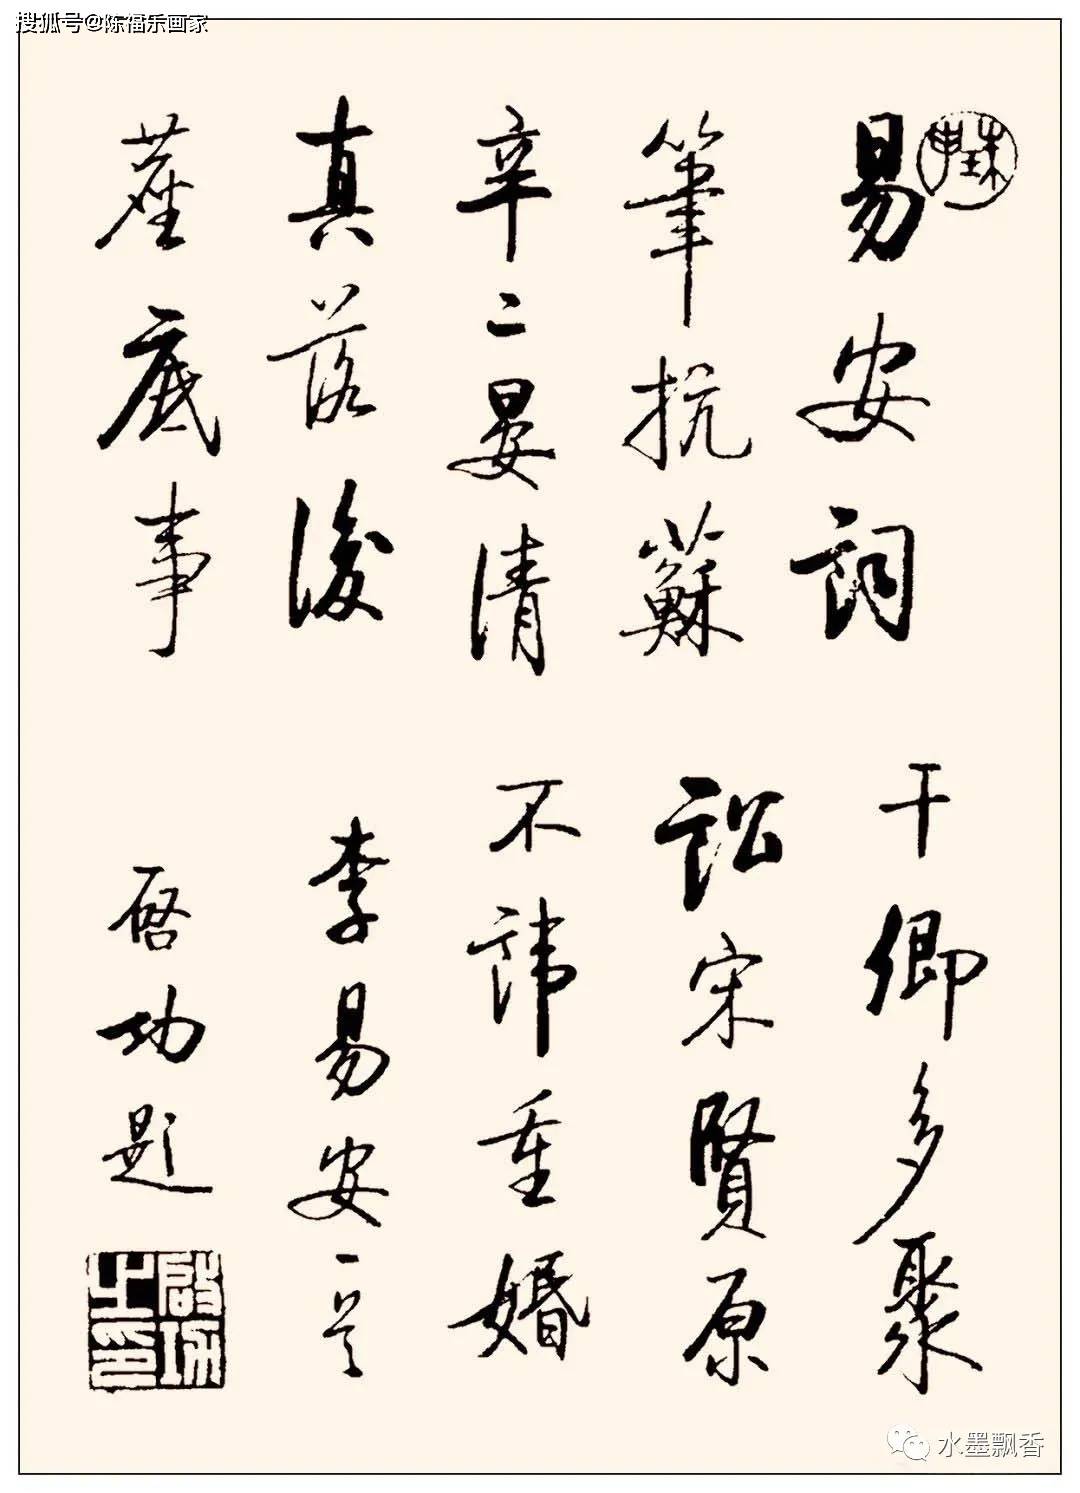 搜狐号@陈福乐画家
珠申
易安詞
筆抗蘇
辛二晏清
真落後
塵底事
干卿多聚
訟宋賢原
不諱重婚
李易安一首
啓功題
啟功之印
水墨飘香